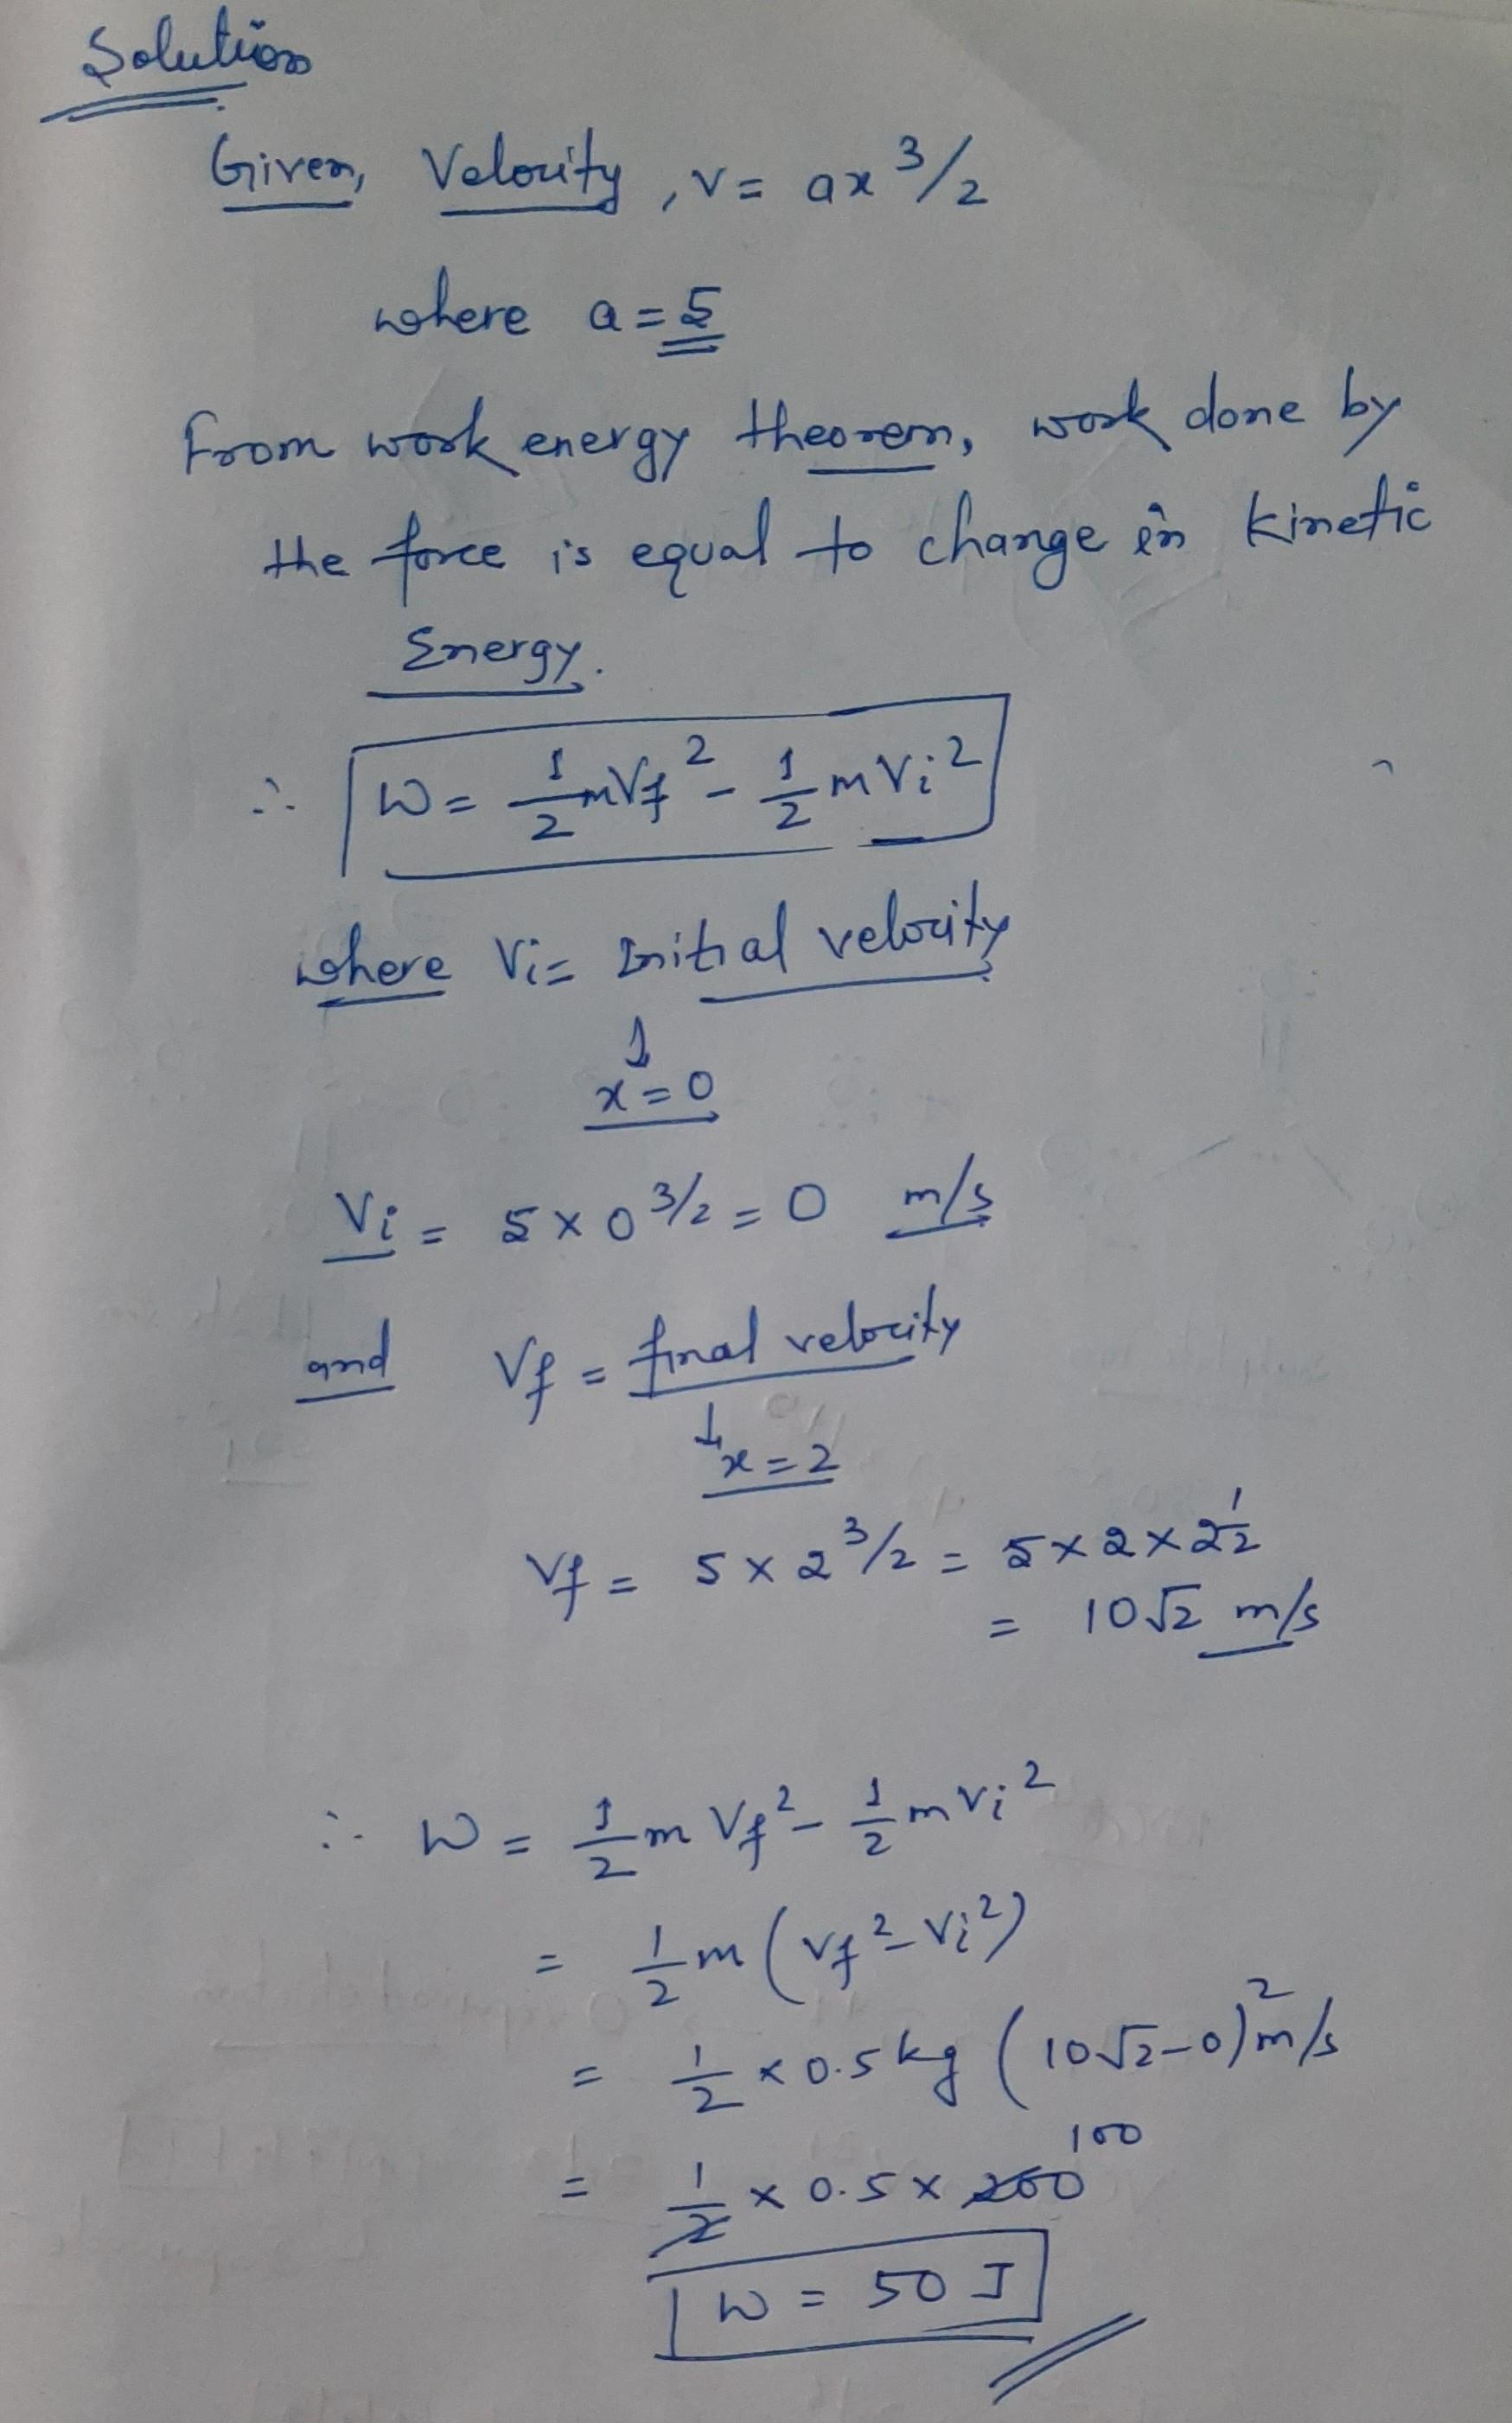 Solution
Given, Velocity, v = ax^3/2
where a = 5
From work energy theorem, work done by
the force is equal to change in kinetic
Energy.
∴ W = 1/2 mVf^2 - 1/2 mVi^2
where Vi = Initial velocity
↓
x = 0
Vi = 5 × 0^3/2 = 0 m/s
and Vf = final velocity
↓
x = 2
Vf = 5 × 2^3/2 = 5 × 2 × 2^1/2
= 10√2 m/s
∴ W = 1/2 m Vf^2 - 1/2 m Vi^2
= 1/2 m (Vf^2 - Vi^2)
= 1/2 × 0.5 kg (10√2 - 0)^2 m/s
100
= 1/2 × 0.5 × 200
W = 50 J